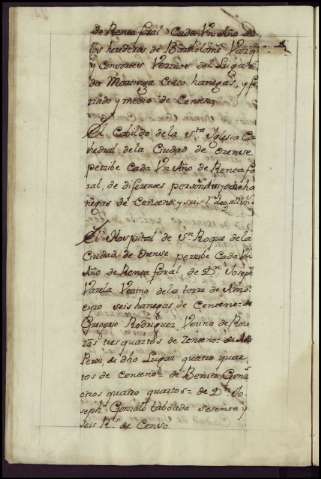 de Renta foral Cada Vn Año de
los herederos de Bartholomé
y Consortes Vezinos del Lugar
de cinco hanegas, y fe
rrado y medio de Centeno
El Cabildo de la Sta Iglesia Ca
thedral de la Ciudad de Orense
percibe Cada Vn Año de Renta fo
ral, de diferentes personas
negas de Centeno y
El Hospital de Sn Roque de la
Ciudad de Orense percibe Cada Vn
Año de Renta foral de Dn Joseph
Varela Vezino de la torre de
eyro seis hanegas de Centeno de
Gregorio Rodriguez Vezino de
tres quartos de Zenteno de
Perez de dho Lugar quatro quar
tos de Centeno de Benita
otros quatro quartos = de Dn Jo
seph Gonzalo taboada sesenta y
seis Rs de Censo